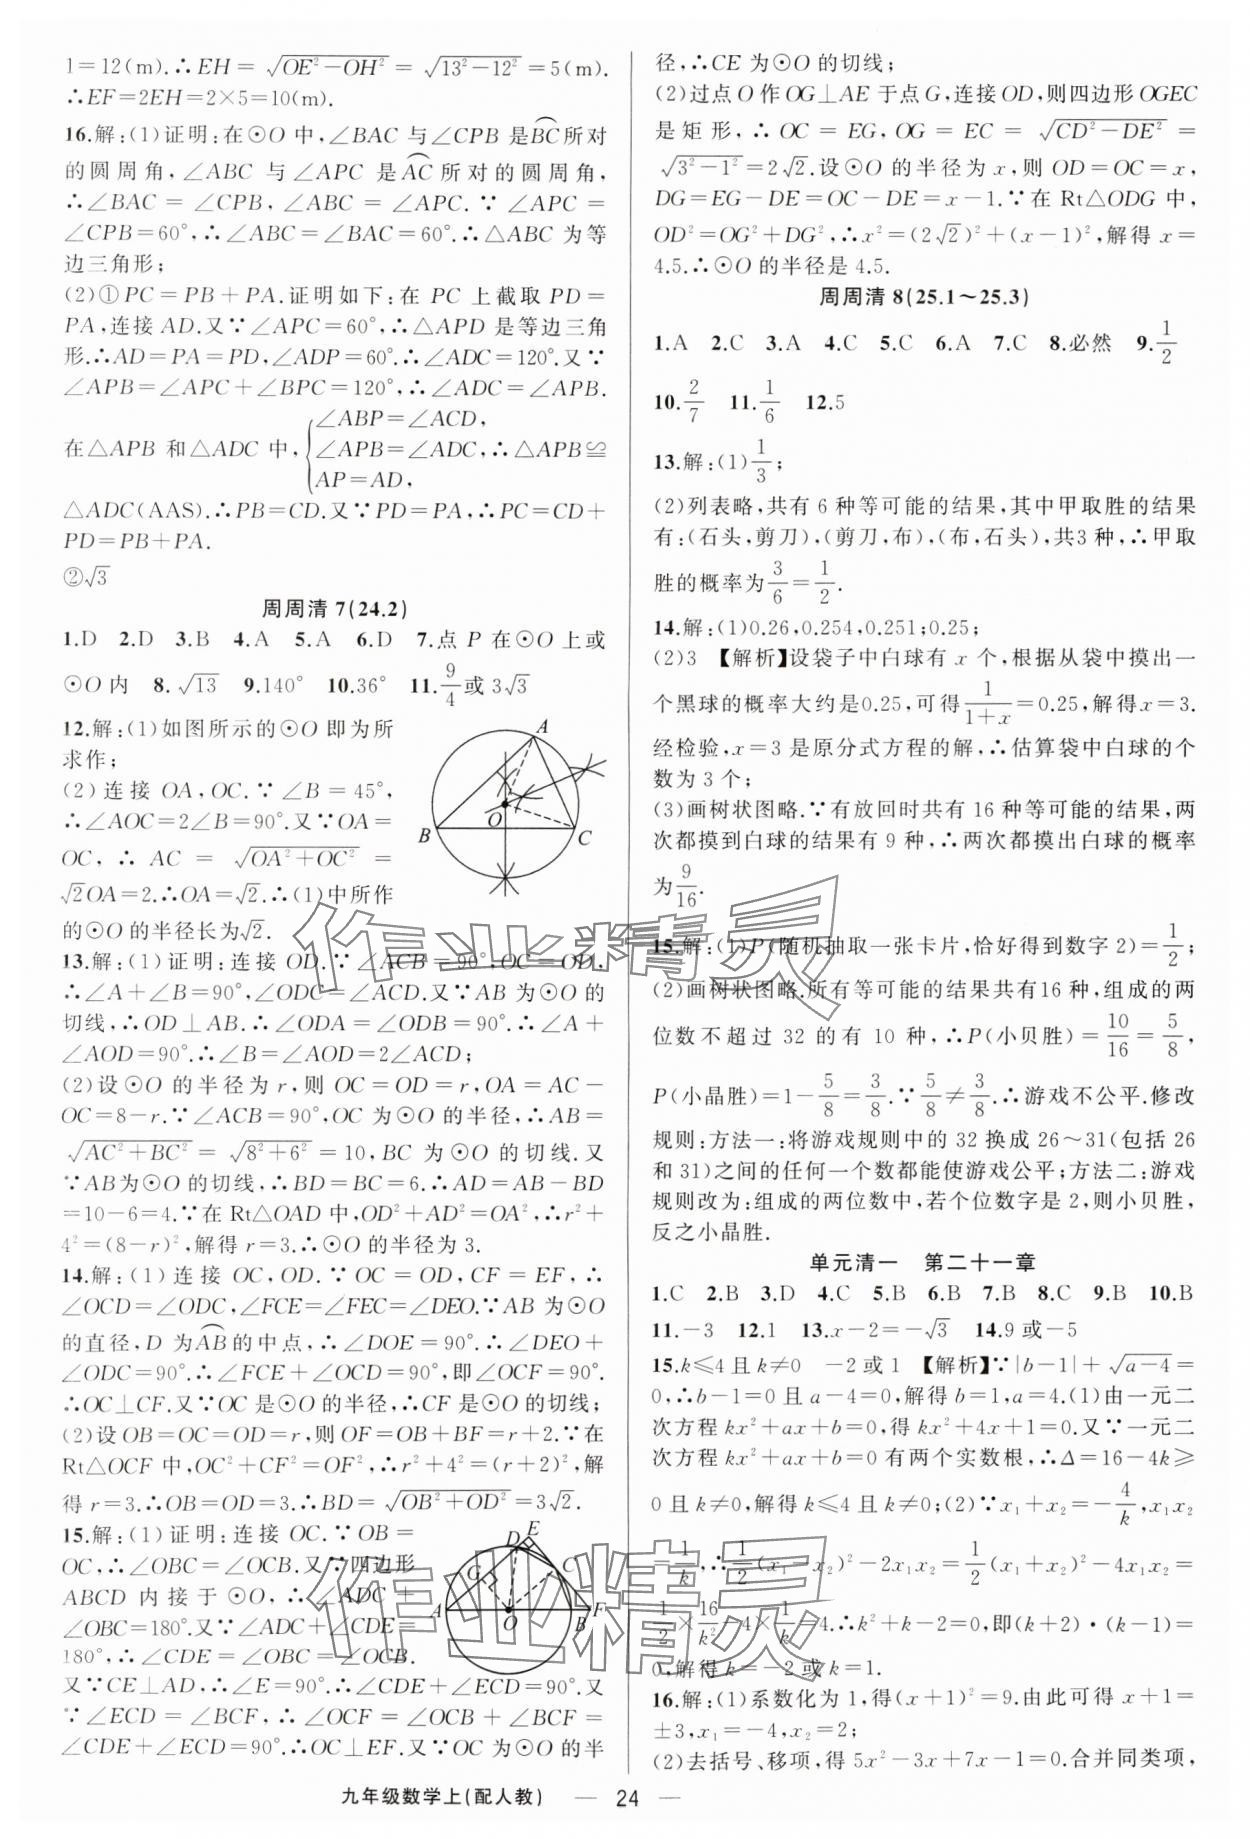 1=12(m).∴EH=√(OE²-OH²)=√(13²-12²)=5(m).
∴EF=2EH=2×5=10(m).
16.解:(1)证明:在⊙O中,∠BAC与∠CPB是BC⌒所对
的圆周角,∠ABC与∠APC是AC⌒所对的圆周角,
∴∠BAC=∠CPB,∠ABC=∠APC.∵∠APC=
∠CPB=60°,∴∠ABC=∠BAC=60°.∴△ABC为等
边三角形;
(2)①PC=PB+PA.证明如下:在PC上截取PD=
PA,连接AD.又∵∠APC=60°,∴△APD是等边三角
形.∴AD=PA=PD,∠ADP=60°.∴∠ADC=120°.又∵
∠APB=∠APC+∠BPC=120°,∴∠ADC=∠APB.
在△APB和△ADC中,{∠ABP=∠ACD,
∠APB=∠ADC,∴△APB≌
AP=AD,
△ADC(AAS).∴PB=CD.又∵PD=PA,∴PC=CD+
PD=PB+PA.
②√3
周周清7(24.2)
1.D 2.D 3.B 4.A 5.A 6.D 7.点P在⊙O上或
⊙O内 8.√13 9.140° 10.36° 11.9/4或3√3
12.解:(1)如图所示的⊙O即为所
求作;
(2)连接OA,OC.∵∠B=45°,
∴∠AOC=2∠B=90°.又∵OA=
OC,∴AC=√(OA²+OC²)=
√2OA=2.∴OA=√2.∴(1)中所作
的⊙O的半径长为√2.
A
B
O
C
13.解:(1)证明:连接OD.∵∠ACB=90°,OC=OD,
∴∠A+∠B=90°,∠ODC=∠ACD.又∵AB为⊙O的
切线,∴OD⊥AB.∴∠ODA=∠ODB=90°.∴∠A+
∠AOD=90°.∴∠B=∠AOD=2∠ACD;
(2)设⊙O的半径为r,则OC=OD=r,OA=AC-
OC=8-r.∵∠ACB=90°,OC为⊙O的半径,∴AB=
√(AC²+BC²)=√(8²+6²)=10,BC为⊙O的切线.又
∵AB为⊙O的切线,∴BD=BC=6.∴AD=AB-BD
=10-6=4.∵在Rt△OAD中,OD²+AD²=OA²,∴r²+
4²=(8-r)²,解得r=3.∴⊙O的半径为3.
14.解:(1)连接OC,OD.∵OC=OD,CF=EF,∴
∠OCD=∠ODC,∠FCE=∠FEC=∠DEO.∵AB为⊙O
的直径,D为AB⌒的中点,∴∠DOE=90°.∴∠DEO+
∠ODC=90°.∴∠FCE+∠OCD=90°,即∠OCF=90°.
∴OC⊥CF.又∵OC是⊙O的半径,∴CF是⊙O的切线;
(2)设OB=OC=OD=r,则OF=OB+BF=r+2.∵在
Rt△OCF中,OC²+CF²=OF²,∴r²+4²=(r+2)²,解
得r=3.∴OB=OD=3.∴BD=√(OB²+OD²)=3√2.
15.解:(1)证明:连接OC.∵OB=
OC,∴∠OBC=∠OCB.又∵四边形
ABCD内接于⊙O,∴∠ADC+
∠OBC=180°.又∵∠ADC+∠CDE=
180°,∴∠CDE=∠OBC=∠OCB.
D
E
G
C
A
O
B
F
又∵CE⊥AD,∴∠E=90°.∴∠CDE+∠ECD=90°.又
∵∠ECD=∠BCF,∴∠OCF=∠OCB+∠BCF=
∠CDE+∠ECD=90°.∴OC⊥EF.又∵OC为⊙O的半
径,∴CE为⊙O的切线;
(2)过点O作OG⊥AE于点G,连接OD,则四边形OGEC
是矩形,∴OC=EG,OG=EC=√(CD²-DE²)=
√(3²-1²)=2√2.设⊙O的半径为x,则OD=OC=x,
DG=EG-DE=OC-DE=x-1.∵在Rt△ODG中,
OD²=OG²+DG²,∴x²=(2√2)²+(x-1)²,解得x=
4.5.∴⊙O的半径是4.5.
周周清8(25.1~25.3)
1.A 2.C 3.A 4.C 5.C 6.A 7.C 8.必然 9.1/2
10.2/7 11.1/6 12.5
13.解:(1)1/3;
(2)列表略,共有6种等可能的结果,其中甲取胜的结果
有:(石头,剪刀),(剪刀,布),(布,石头),共3种,∴甲取
胜的概率为3/6=1/2.
14.解:(1)0.26,0.254,0.251;0.25;
(2)3 【解析】设袋子中白球有x个,根据从袋中摸出一
个黑球的概率大约是0.25,可得1/(1+x)=0.25,解得x=3.
经检验,x=3是原分式方程的解,∴估算袋中白球的个
数为3个;
(3)画树状图略.∵有放回时共有16种等可能的结果,两
次都摸到白球的结果有9种,∴两次都摸出白球的概率
为9/16.
15.解:(1)P(随机抽取一张卡片,恰好得到数字2)=1/2;
(2)画树状图略.所有等可能的结果共有16种,组成的两
位数不超过32的有10种,∴P(小贝胜)=10/16=5/8,
P(小晶胜)=1-5/8=3/8.∵5/8≠3/8.∴游戏不公平.修改
规则:方法一:将游戏规则中的32换成26~31(包括26
和31)之间的任何一个数都能使游戏公平;方法二:游戏
规则改为:组成的两位数中,若个位数字是2,则小贝胜,
反之小晶胜.
单元清一 第二十一章
1.C 2.B 3.D 4.C 5.B 6.B 7.B 8.C 9.B 10.B
11.-3 12.1 13.x-2=-√3 14.9或-5
15.k≤4且k≠0 -2或1 【解析】∵|b-1|+√(a-4)=
0,∴b-1=0且a-4=0,解得b=1,a=4.(1)由一元二
次方程kx²+ax+b=0,得kx²+4x+1=0.又∵一元二
次方程kx²+ax+b=0有两个实数根,∴Δ=16-4k≥
0且k≠0,解得k≤4且k≠0;(2)∵x₁+x₂=-4/k,x₁x₂
=1/k,∴1/2(x₁-x₂)²-2x₁x₂=1/2(x₁+x₂)²-4x₁x₂=
1/2×16/k²-4×1/k=4.∴k²+k-2=0,即(k+2)·(k-1)=
0,解得k=-2或k=1.
16.解:(1)系数化为1,得(x+1)²=9.由此可得x+1=
±3,x₁=-4,x₂=2;
(2)去括号、移项,得5x²-3x+7x-1=0.合并同类项,
九年级数学上(配人教) — 24 —
作业精灵
作业精灵